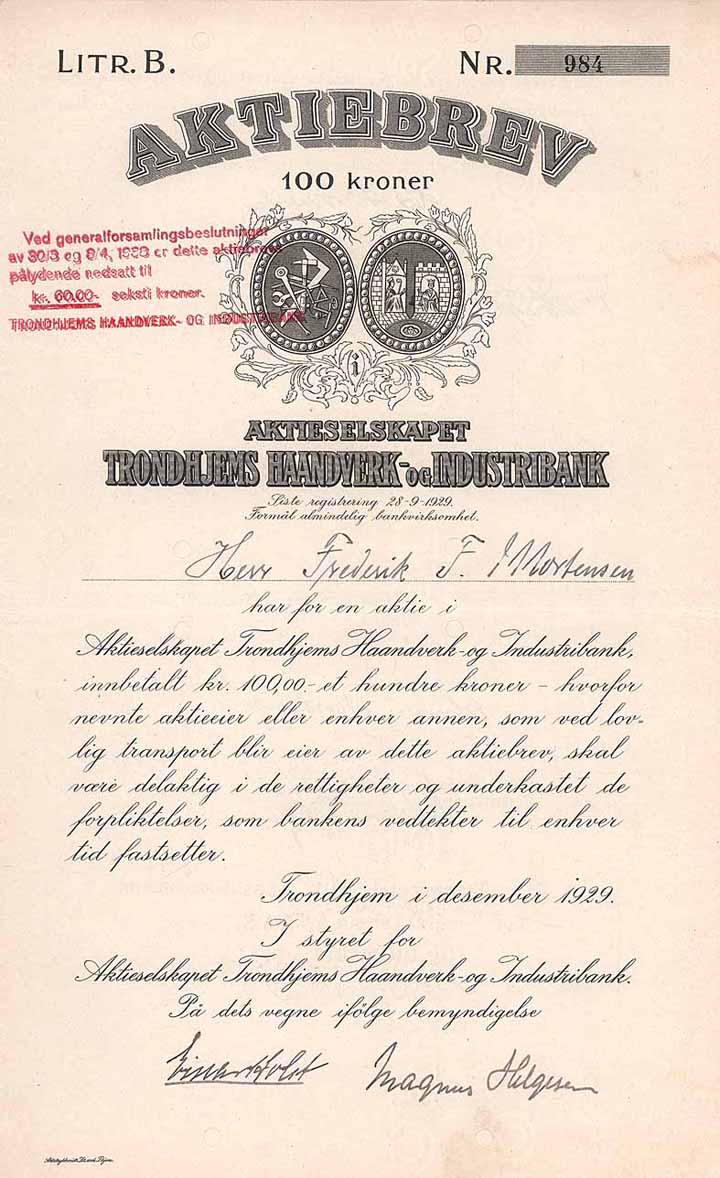 LITR. B.
NR. 984
AKTIEBREV
100 kroner
Ved generalforsamlingsbeslutninger
av 30/3 og 6/4, 1933 er dette aktiebrevs
pålydende nedsatt til
kr. 60.00- seksti kroner.
TRONDHJEMS HAANDVERK- OG INDUSTRIBANK
i
AKTIESELSKAPET
TRONDHJEMS HAANDVERK- OG INDUSTRIBANK
Siste registrering 28-9-1929.
Formål almindelig bankvirksomhet.
Herr Frederik F. Mortensen
har for en aktie i
Aktieselskapet Trondhjems Haandverk- og Industribank,
innbetalt kr. 100,00- et hundre kroner - hvorfor
nevnte aktieeier eller enhver annen, som ved lov-
lig transport blir eier av dette aktiebrev, skal
være delaktig i de rettigheter og underkastet de
forpliktelser, som bankens vedtekter til enhver
tid fastsetter.
Trondhjem i desember 1929.
I styret for
Aktieselskapet Trondhjems Haandverk- og Industribank.
På dets vegne ifölge bemyndigelse
Einar Holst
Magnus Helgesen